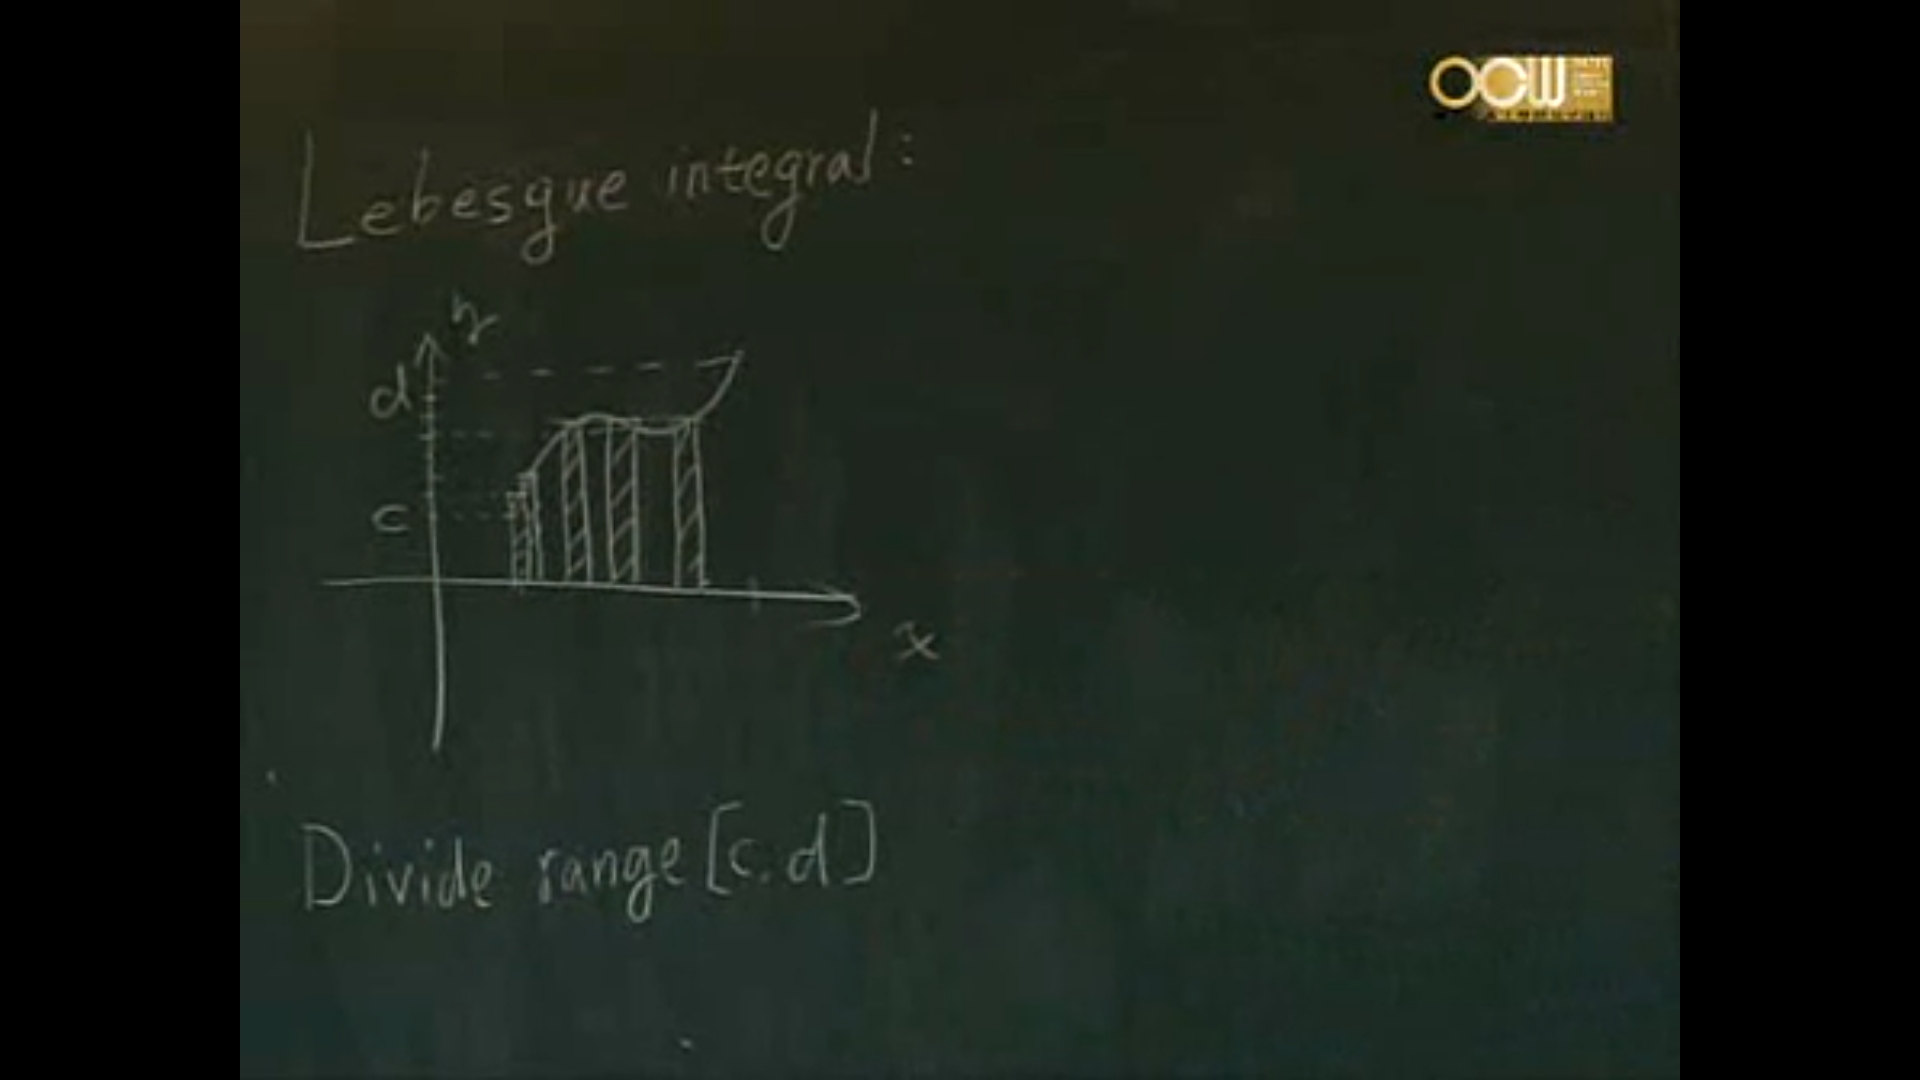 Lebesgue integral:
y
d
c
x
Divide range [c.d]
OCW